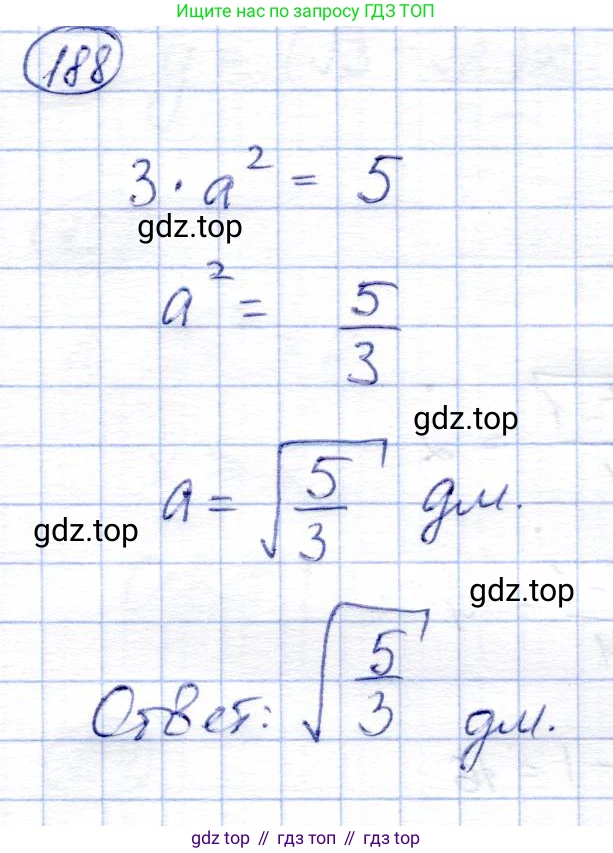 Ищите нас по запросу ГДЗ ТОП
188
3 · a² = 5
gdz.top
a² = 5/3
gdz.top
a = √(5/3) дм.
gdz.top
gdz.top
Ответ: √(5/3) дм.
gdz.top // гдз топ // гдз.top